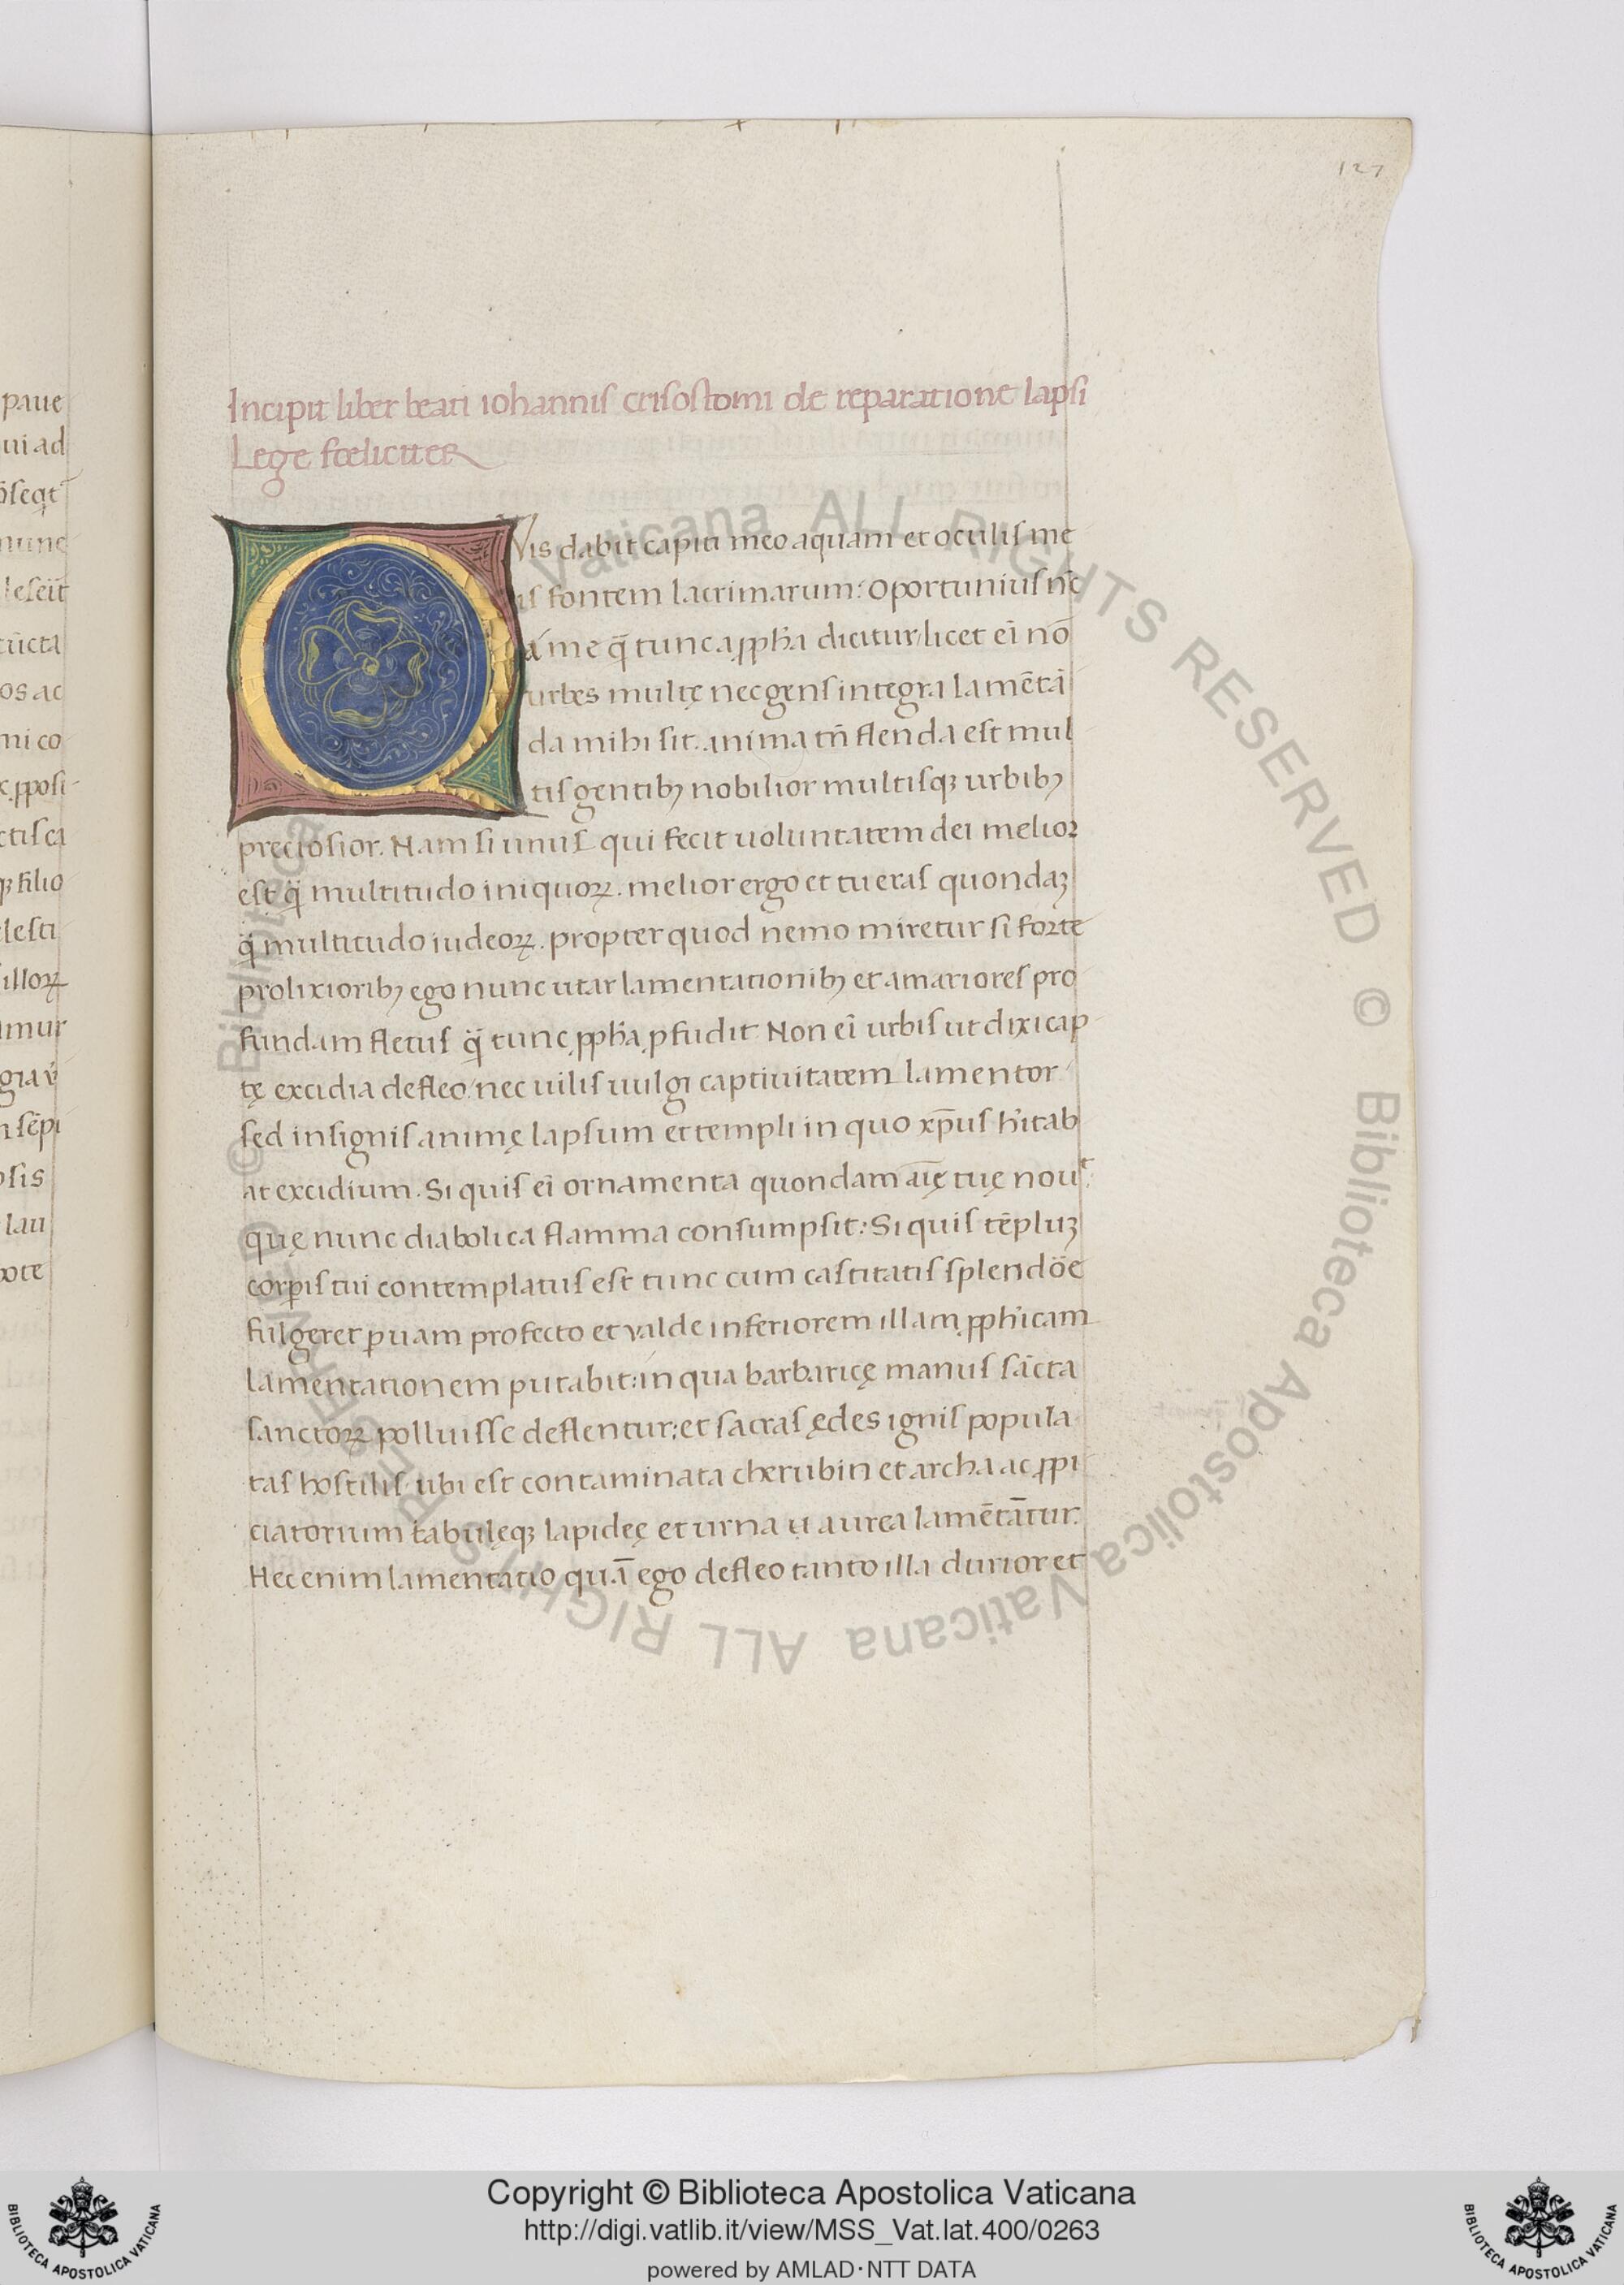 127
Incipit liber beati iohannis crisostomi de reparatione lapsi
Lege fœliciter
QVis dabit capiti meo aquam et oculis me
is fontem lacrimarum: Oportunius nc̄
á me q̄ tunc a ꝓpħa dicitur/ licet ei̅ nō
urbes multę nec gens integra lamētā
da mihi sit. anima tn̄ flenda est mul
tis gentibꝫ nobilior multisqꝫ urbibꝫ
preciosior. Nam si unus qui fecit uoluntatem dei melior
est q̄ multitudo iniquoꝝ. melior ergo et tu eras quondaꝫ
q̄ multitudo iudeoꝝ. propter quod nemo miretur si forte
prolixioribꝫ ego nunc utar lamentationibꝫ et amariores pro
fundam fletus q̄ tunc ꝓpħa ꝓfudit Non ei̅ urbis ut dixi cap
tę excidia defleo/ nec uilis uulgi captiuitatem lamentor
sed insignis animę lapsum et templi in quo xp̄us ħitab
at excidium. Si quis ei̅ ornamenta quondam aīę tuę nouᵗ:
quę nunc diabolica flamma consumpsit: Si quis tēpluꝫ
corꝑis tui contemplatus est tunc cum castitatis splendōe
fulgeret ꝑuam profecto et valde inferiorem illam ꝓpħicam
lamentationem putabit: in qua barbaricę manus sācta
sanctoꝝ polluisse deflentur: et sacras ędes ignis popula
tas hostilis. ubi est contaminata cherubin et archa ac ꝓpi
ciatorium tabulęqꝫ lapideę et urna ų aurea lamētātur.
Hec enim lamentatio quā ego defleo tanto illa durior et
paue
ui ad
nunc
os ac
mi co
qꝫ filio
lesti
illoꝝ
lau
© Biblioteca Apostolica Vaticana ALL RIGHTS RESERVED
Copyright © Biblioteca Apostolica Vaticana
http://digi.vatlib.it/view/MSS_Vat.lat.400/0263
powered by AMLAD·NTT DATA
BIBLIOTECA APOSTOLICA VATICANA
BIBLIOTECA APOSTOLICA VATICANA